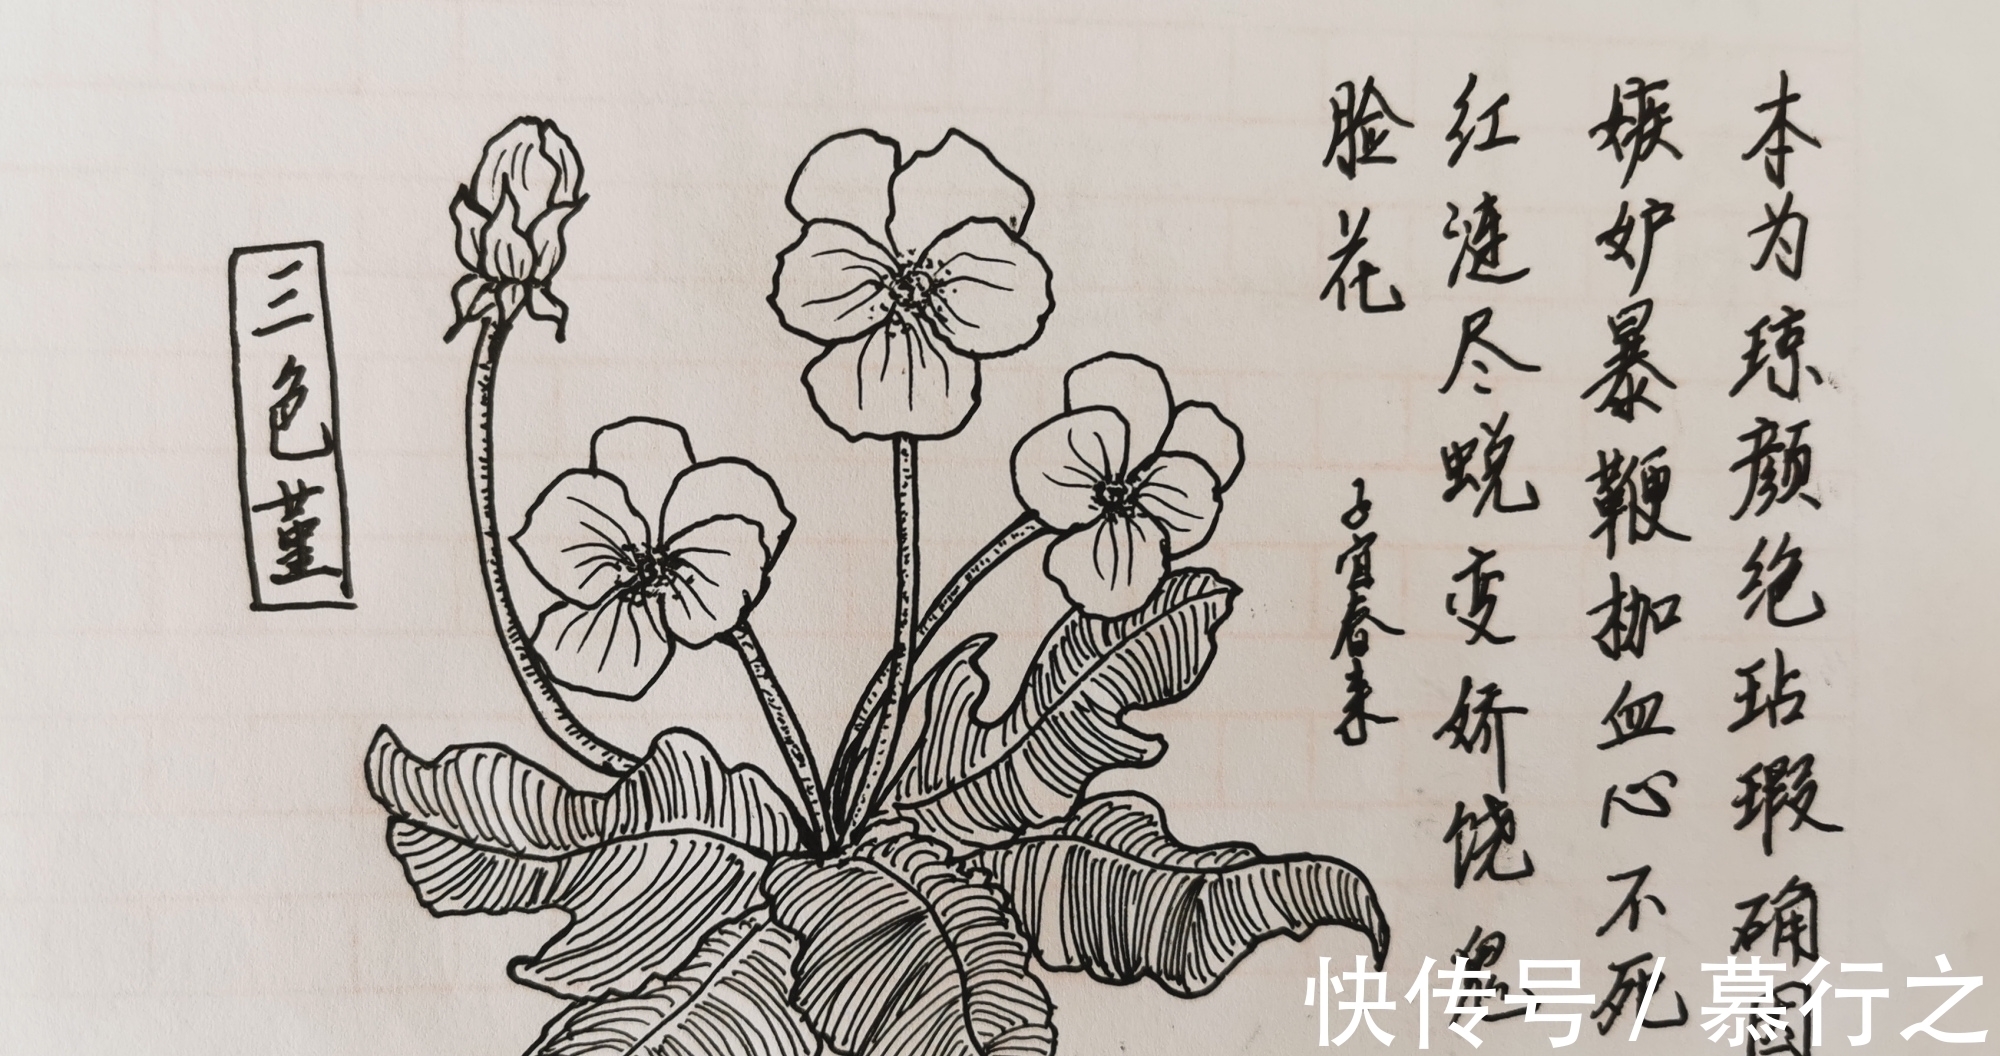 本为琼颜绝玷瑕确因
嫉妒暴鞭枷血心不死
红涟尽蜕变娇饶鬼
脸花
子宜春来
三色堇
快传号 / 慕行之